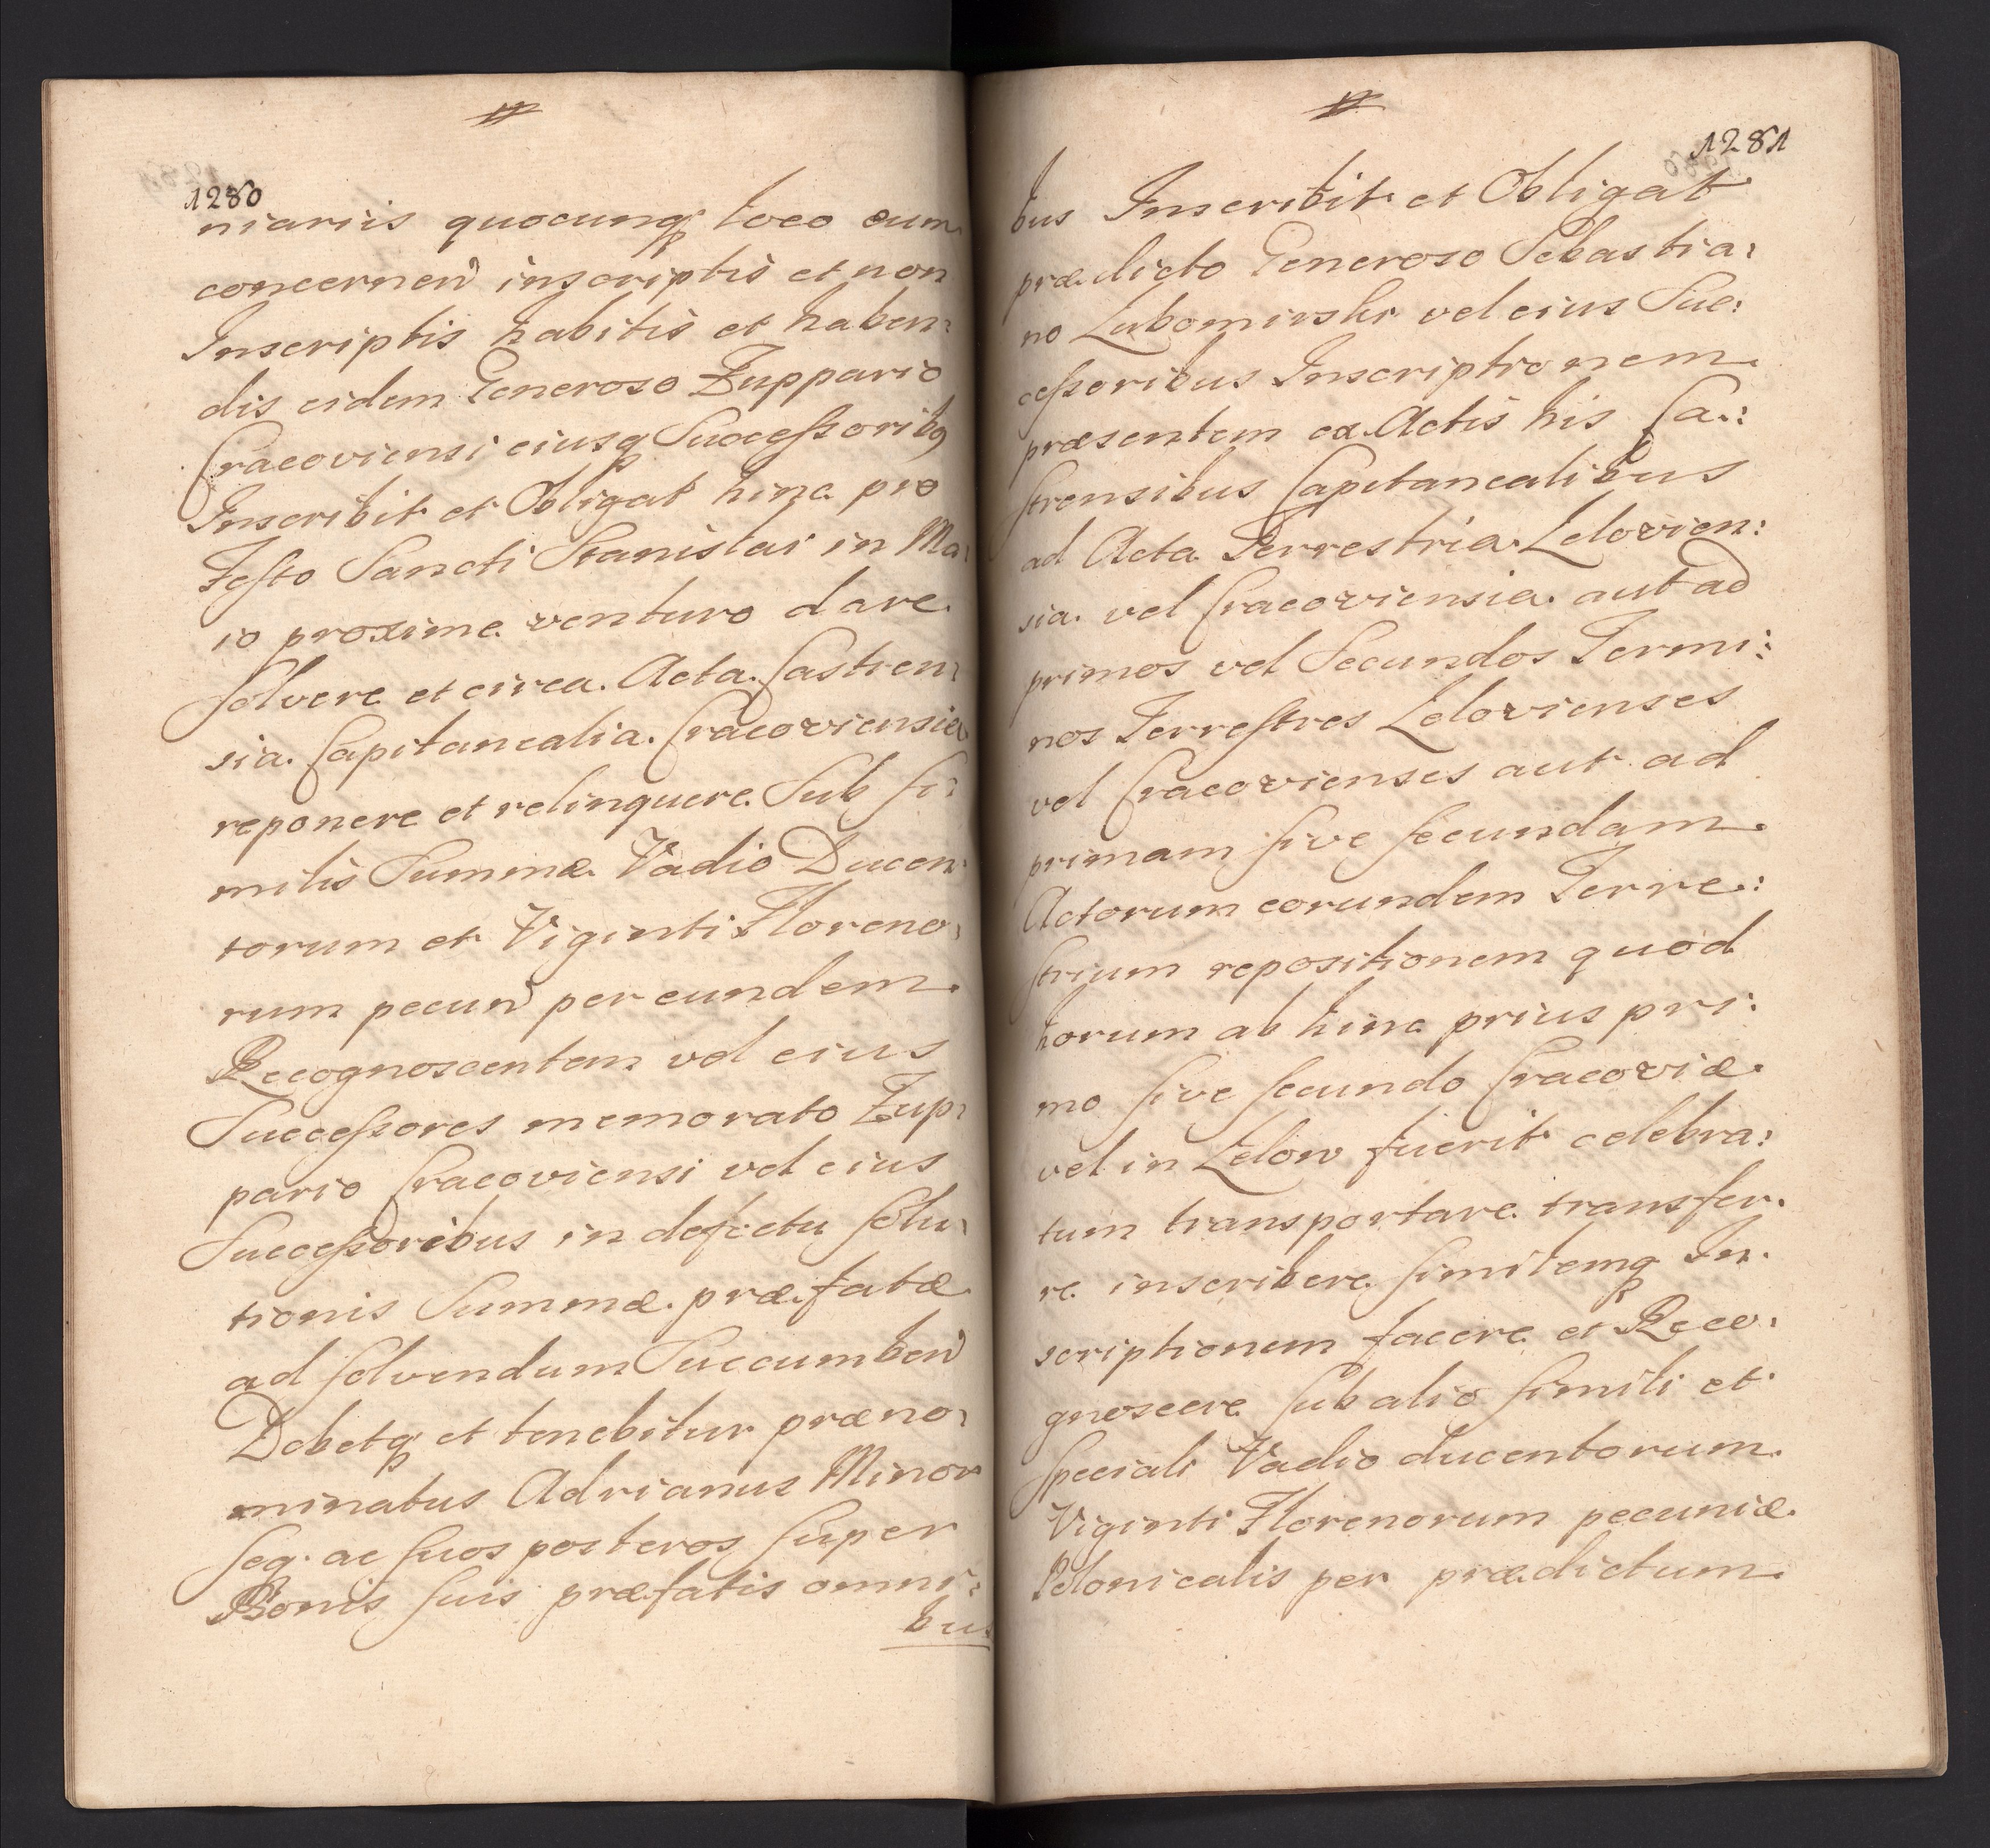 1280
niariis quocunq; loco eum
concernen inscriptis et non
Inscriptis habitis et haben:
dis eidem Generoso Zuppario
Cracoviensi eiusq Successoribq
Inscribit et Obligat hinc pro
Festo Sancti Stanislai in Ma:
io proxime venturo dare
solvere et circa Acta Castren:
sia Capitanealia Cracoviensia
reponere et relinquere Sub si:
milis Summæ Vadio Ducen:
torum et Viginti Floreno:
rum pecun per eundem
Recognoscentem vel eius
Successores memorato Zup:
pario Cracoviensi vel eius
Successoribus in defectu solu:
tionis Summæ præfatæ
ad solvendum Succumben
Debetq; et tenebitur præno:
minatus Adrianus Minor
seq. ac suos posteros super
Bonis suis præfatis omni:
bus
1281
bus Inscribit et Obligat
prædicto Generoso Sebastia:
no Lubomirski vel eius Suc:
cessoribus Inscriptionem
præsentem ex Actis his Ca:
strensibus Capitanealibus
ad Acta Terrestria Lelovien:
sia vel Cracoviensia aut ad
primos vel Secundos Termi:
nos Terrestres Lelovienses
vel Cracovienses aut ad
primam sive secundam
Actorum eorundem Terre:
strium repositionem quod
horum ab hinc prius pri:
mo sive secundo Cracoviæ
vel in Lelow fuerit celebra:
tum transportare transfer:
re inscribere similemq In:
scriptionem facere et Reco:
gnoscere sub alio simili et
speciali Vadio ducentorum
Viginti Florenorum pecuniæ
Polonicalis per prædictum